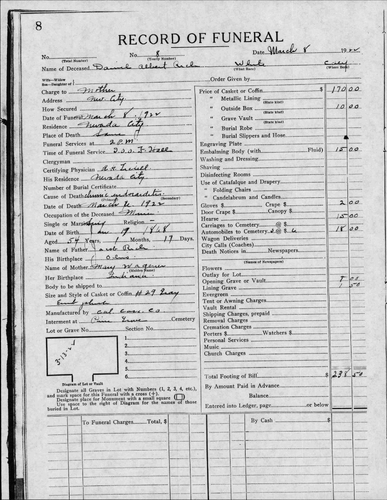 8
RECORD OF FUNERAL
No. No. 8 Date March 8 1922
(Total Number) (Yearly Number)
Name of Deceased Daniel Albert Rich White
Charge to Mother Order Given by
Address Nev City
How Secured
Date of Funeral March 8, 1922
Residence Nevada City
Place of Death Same
Funeral Services at 2 P.M
Time of Funeral Service I.O.O.F. Hall
Clergyman
Certifying Physician
His Residence Nevada City
Number of Burial Certificate
Cause of Death
Date of Death March 6 1922
Occupation of the Deceased Miner
Single or Married Single Religion
Date of Birth Jan 19 1868
Aged 54 Years Months 17 Days
Name of Father Jacob Rich
His Birthplace Ohio
Name of Mother Mary
Her Birthplace Indiana
Body to be shipped to
Size and Style of Casket or Coffin # 29 Gray
Manufactured by Cal Cas. Co
Interment at Pine Grove Cemetery
Lot or Grave No. Section No.
3-13-22
1.
2.
3.
4.
5.
6.
Diagram of Lot or Vault
Designate all Graves in Lot with Numbers (1, 2, 3, 4, etc.), and mark space for this Funeral with a cross (+).
Designate place for Monument with a small square
Use space to the right of Diagram for the names of those buried in Lot.
Price of Casket or Coffin $ 170 00
" Metallic Lining
(State Kind)
" Outside Box 10 00
(State Kind)
" Grave Vault
(State Kind)
" Burial Robe
(State Kind)
" Burial Slippers and Hose
Engraving Plate
Embalming Body (with Fluid) 15 00
Washing and Dressing
Shaving
Disinfecting Rooms
Use of Catafalque and Drapery
" Folding Chairs
" Candelabrum and Candles
Gloves $ Crape $ 2 00
Door Crape $ Canopy $
Hearse 15 00
Carriages to Cemetery @ $
Automobiles to Cemetery 3 @ $ 6 18 00
Wagon Deliveries @ $
City Calls (Coaches) @ $
Death Notices in Newspapers
(Names of Newspapers)
Flowers
Outlay for Lot
Opening Grave or Vault
Lining Grave 1 50
Evergreen
Tent or Awning Charges
Vault Rental
Shipping Charges, prepaid
Removal Charges
Cremation Charges
Porters $ Watchers $
Personal Services
Music
Church Charges
Total Footing of Bill $ 238 50
By Amount Paid in Advance
Balance
Entered into Ledger, page or below
To Funeral Charges Total, $ By Cash $